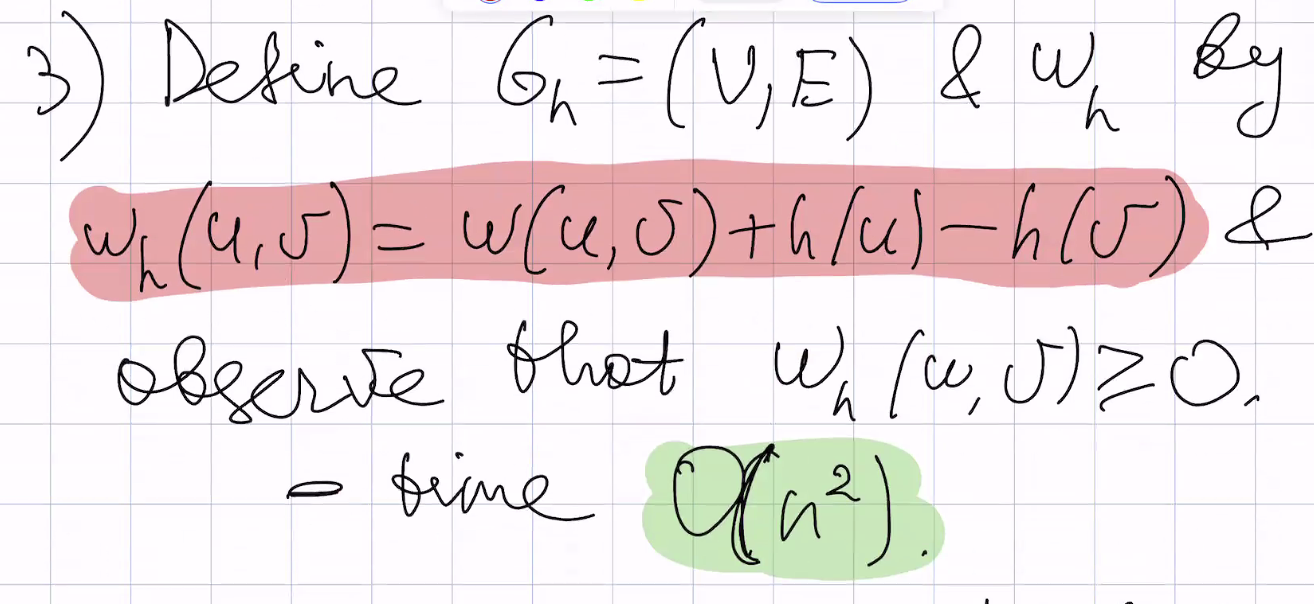 3) Define G_h = (V, E) & w_h by
w_h(u, v) = w(u, v) + h(u) - h(v) &
observe that w_h(u, v) ≥ 0.
- time O(n²).